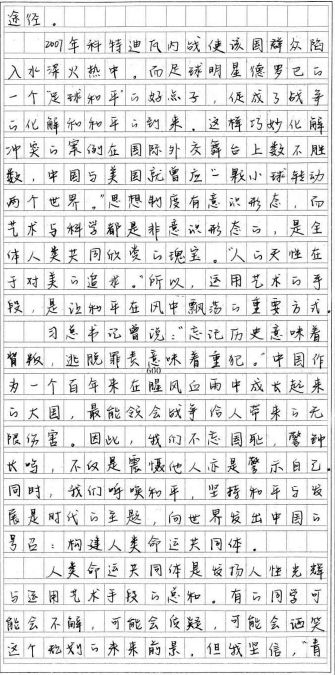 途径。
2007年科特迪瓦内战使该国群众陷
入水深火热中。而足球明星德罗巴的
一个"足球和平"的好点子,促成了战争
的化解和和平的到来。这样巧妙化解
冲突的案例在国际外交舞台上数不胜
数,中国与美国就曾应"一颗小球转动
两个世界。"思想制度有意识形态,而
艺术与科学都是非意识形态的,是全
体人类共同欣赏的瑰宝。"人的天性在
于对美的追求。"所以,运用艺术的手
段,是让和平在风中飘荡的重要方式。
习总书记曾说:"忘记历史意味着
背叛,逃脱罪责意味着重犯。"中国作
600
为一个百年来在腥风血雨中成长起来
的大国,最能领会战争给人带来的无
限伤害。因此,我们不忘国耻,警钟
长鸣,不仅是震慑他人亦是警示自己。
同时,我们呼唤和平,坚持和平与发
展是时代的主题,向世界发出中国的
号召:构建人类命运共同体。
人类命运共同体是发扬人性光辉
与运用艺术手段的总和。有的同学可
能会不解,可能会质疑,可能会讪笑
这个规划的未来前景。但我坚信,"青